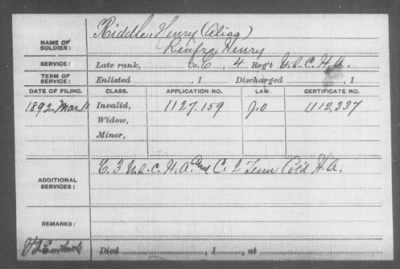 NAME OF SOLDIER: Riddle, Henry (Alias)
Renfro, Henry
SERVICE: Late rank, Co. C, 4 Reg't U.S.C.H.A.
TERM OF SERVICE: Enlisted , 1 Discharged , 1
DATE OF FILING. CLASS. APPLICATION NO. LAW. CERTIFICATE NO.
1892, Mar. Invalid, 1127.159 J.O 1112,337
Widow,
Minor,
ADDITIONAL SERVICES: C. 3 U.S.C.H.A. and C. I. Tenn Cold H.A.
REMARKS:
Died , 1 , at